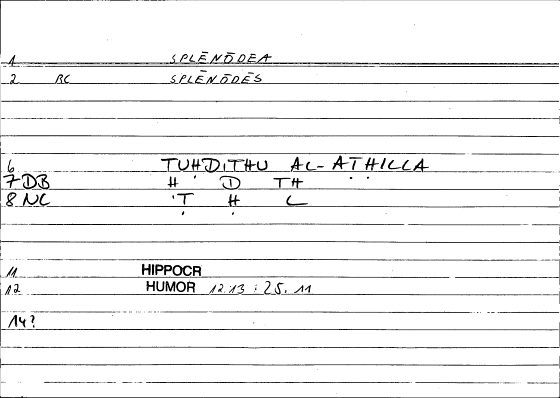 1 SPLĒNŌDEA
2 RC SPLĒNŌDĒS
6 TUḤDITHU AL-ATḤILLA
7 DB H D TH
8 NC 'Ṭ Ḥ L
11 HIPPOCR
12 HUMOR 12.13 : 25. 11
14?